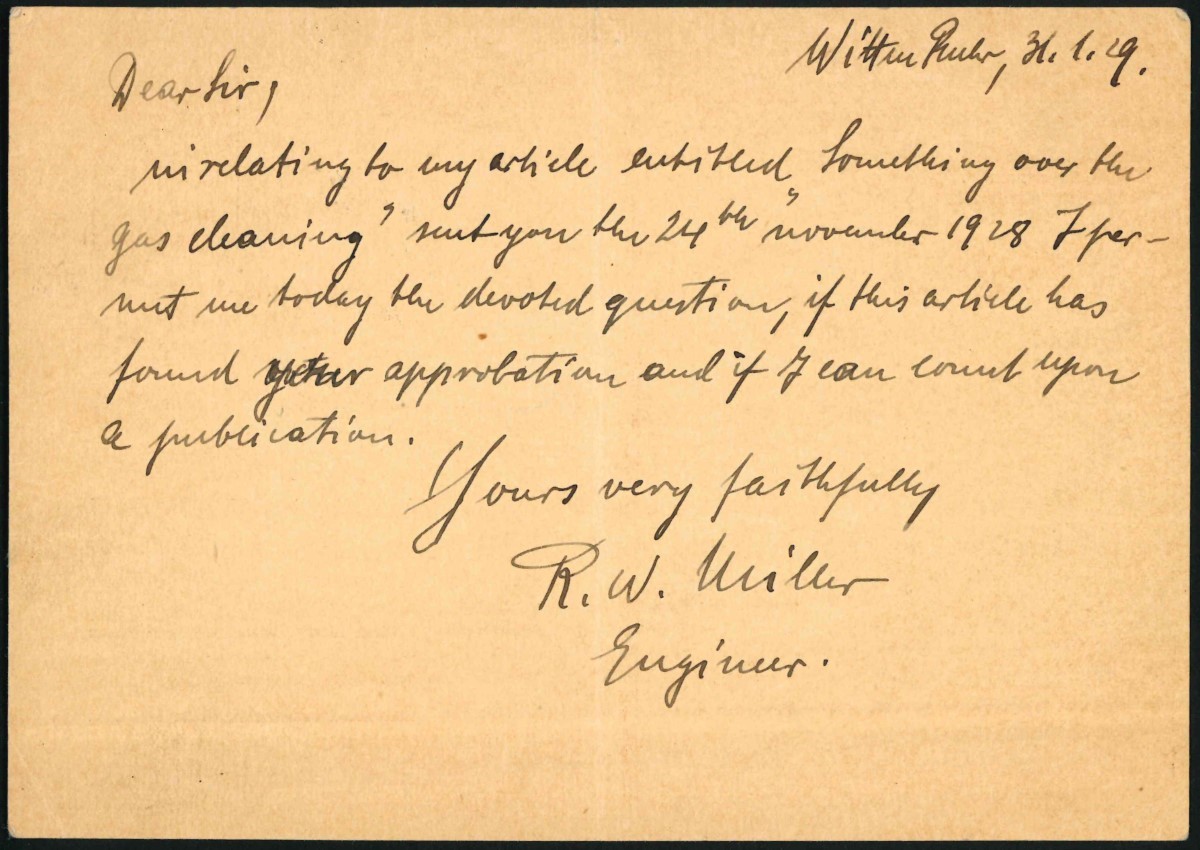 Witten Ruhr, 31.1.29.
Dear Sir,
in relating to my article entitled „Something over the
gas cleaning” sent you the 24th november 1928 I per-
mit me today the devoted question, if this article has
found your approbation and if I can count upon
a publication.
Yours very faithfully
R. W. Müller
Engineer.